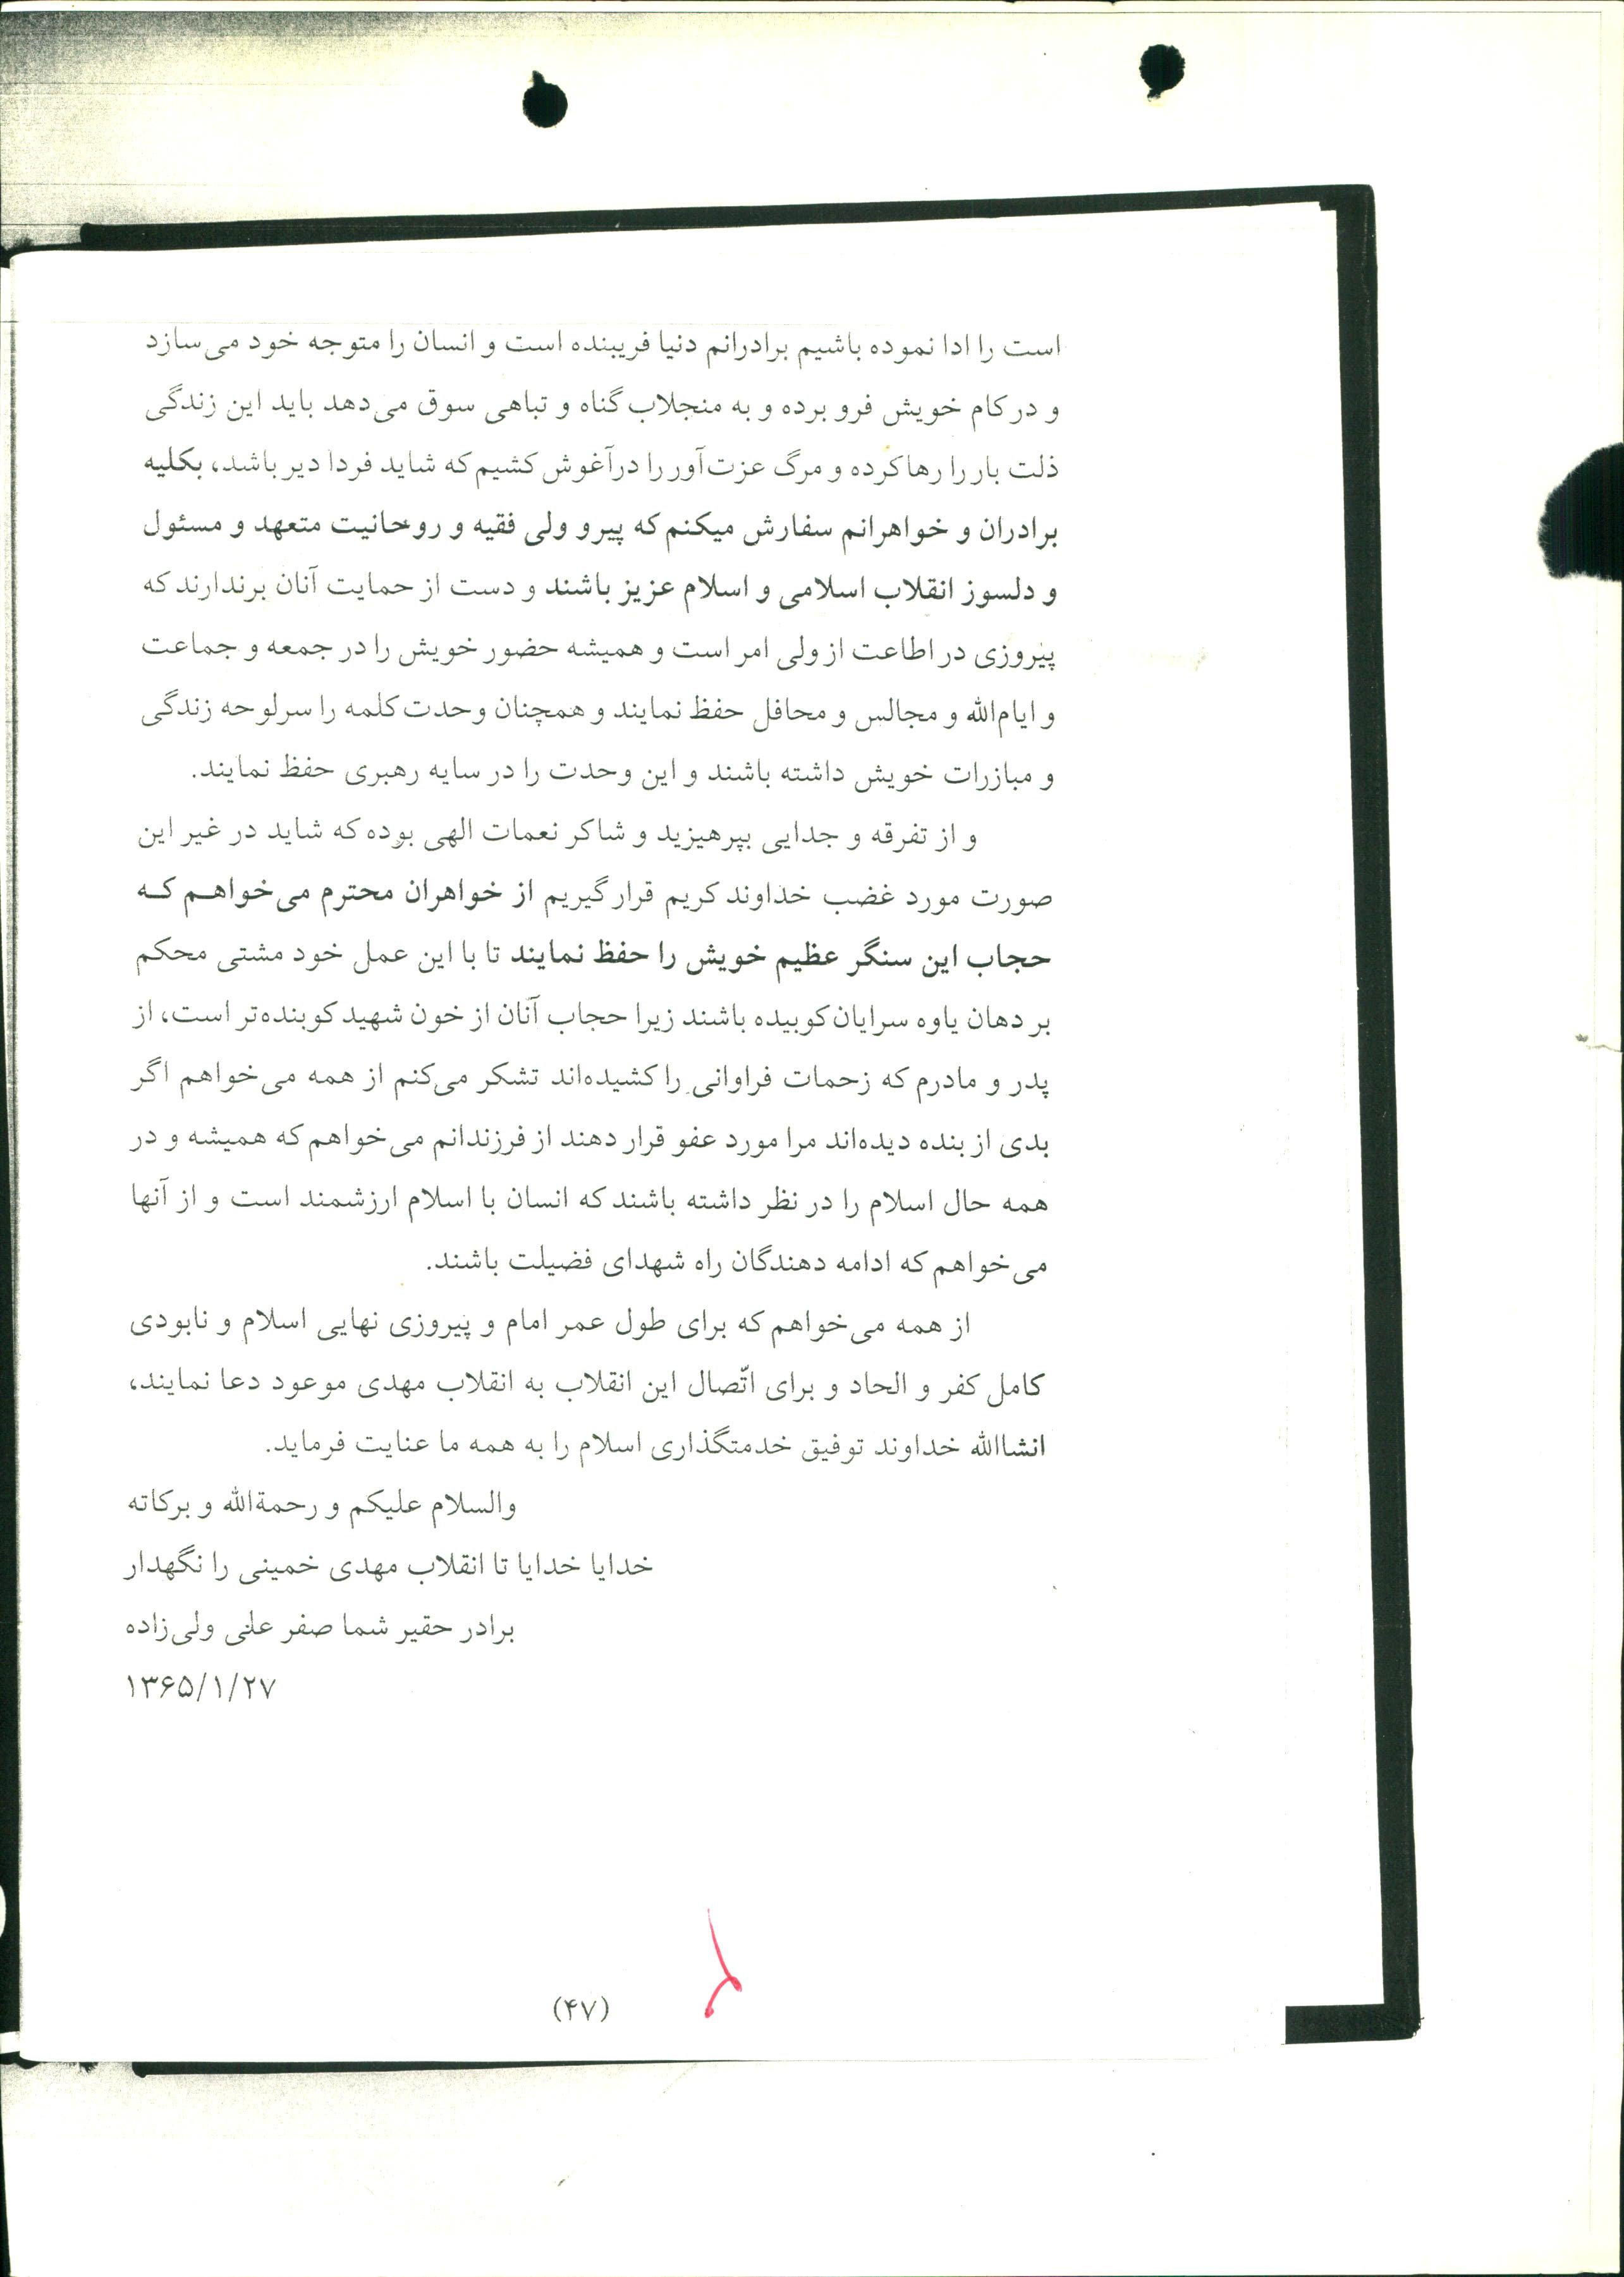 است را ادا نموده باشیم برادرانم دنیا فریبنده است و انسان را متوجه خود می‌سازد
و در کام خویش فرو برده و به منجلاب گناه و تباهی سوق می‌دهد باید این زندگی
ذلت بار را رها کرده و مرگ عزت‌آور را درآغوش کشیم که شاید فردا دیر باشد، بکلیه
برادران و خواهرانم سفارش میکنم که پیرو ولی فقیه و روحانیت متعهد و مسئول
و دلسوز انقلاب اسلامی و اسلام عزیز باشند و دست از حمایت آنان برندارند که
پیروزی در اطاعت از ولی امر است و همیشه حضور خویش را در جمعه و جماعت
و ایام‌الله و مجالس و محافل حفظ نمایند و همچنان وحدت کلمه را سرلوحه زندگی
و مبازرات خویش داشته باشند و این وحدت را در سایه رهبری حفظ نمایند.
و از تفرقه و جدایی بپرهیزید و شاکر نعمات الهی بوده که شاید در غیر این
صورت مورد غضب خداوند کریم قرار گیریم از خواهران محترم می‌خواهـم کـه
حجاب این سنگر عظیم خویش را حفظ نمایند تا با این عمل خود مشتی محکم
بر دهان یاوه سرایان کوبیده باشند زیرا حجاب آنان از خون شهید کوبنده‌تر است، از
پدر و مادرم که زحمات فراوانی را کشیده‌اند تشکر می‌کنم از همه می‌خواهم اگر
بدی از بنده دیده‌اند مرا مورد عفو قرار دهند از فرزندانم می‌خواهم که همیشه و در
همه حال اسلام را در نظر داشته باشند که انسان با اسلام ارزشمند است و از آنها
می‌خواهم که ادامه دهندگان راه شهدای فضیلت باشند.
از همه می‌خواهم که برای طول عمر امام و پیروزی نهایی اسلام و نابودی
کامل کفر و الحاد و برای اتّصال این انقلاب به انقلاب مهدی موعود دعا نمایند،
انشاالله خداوند توفیق خدمتگذاری اسلام را به همه ما عنایت فرماید.
والسلام علیکم و رحمةالله و برکاته
خدایا خدایا تا انقلاب مهدی خمینی را نگهدار
برادر حقیر شما صفر علی ولی‌زاده
۱۳۶۵/۱/۲۷
(۴۷)